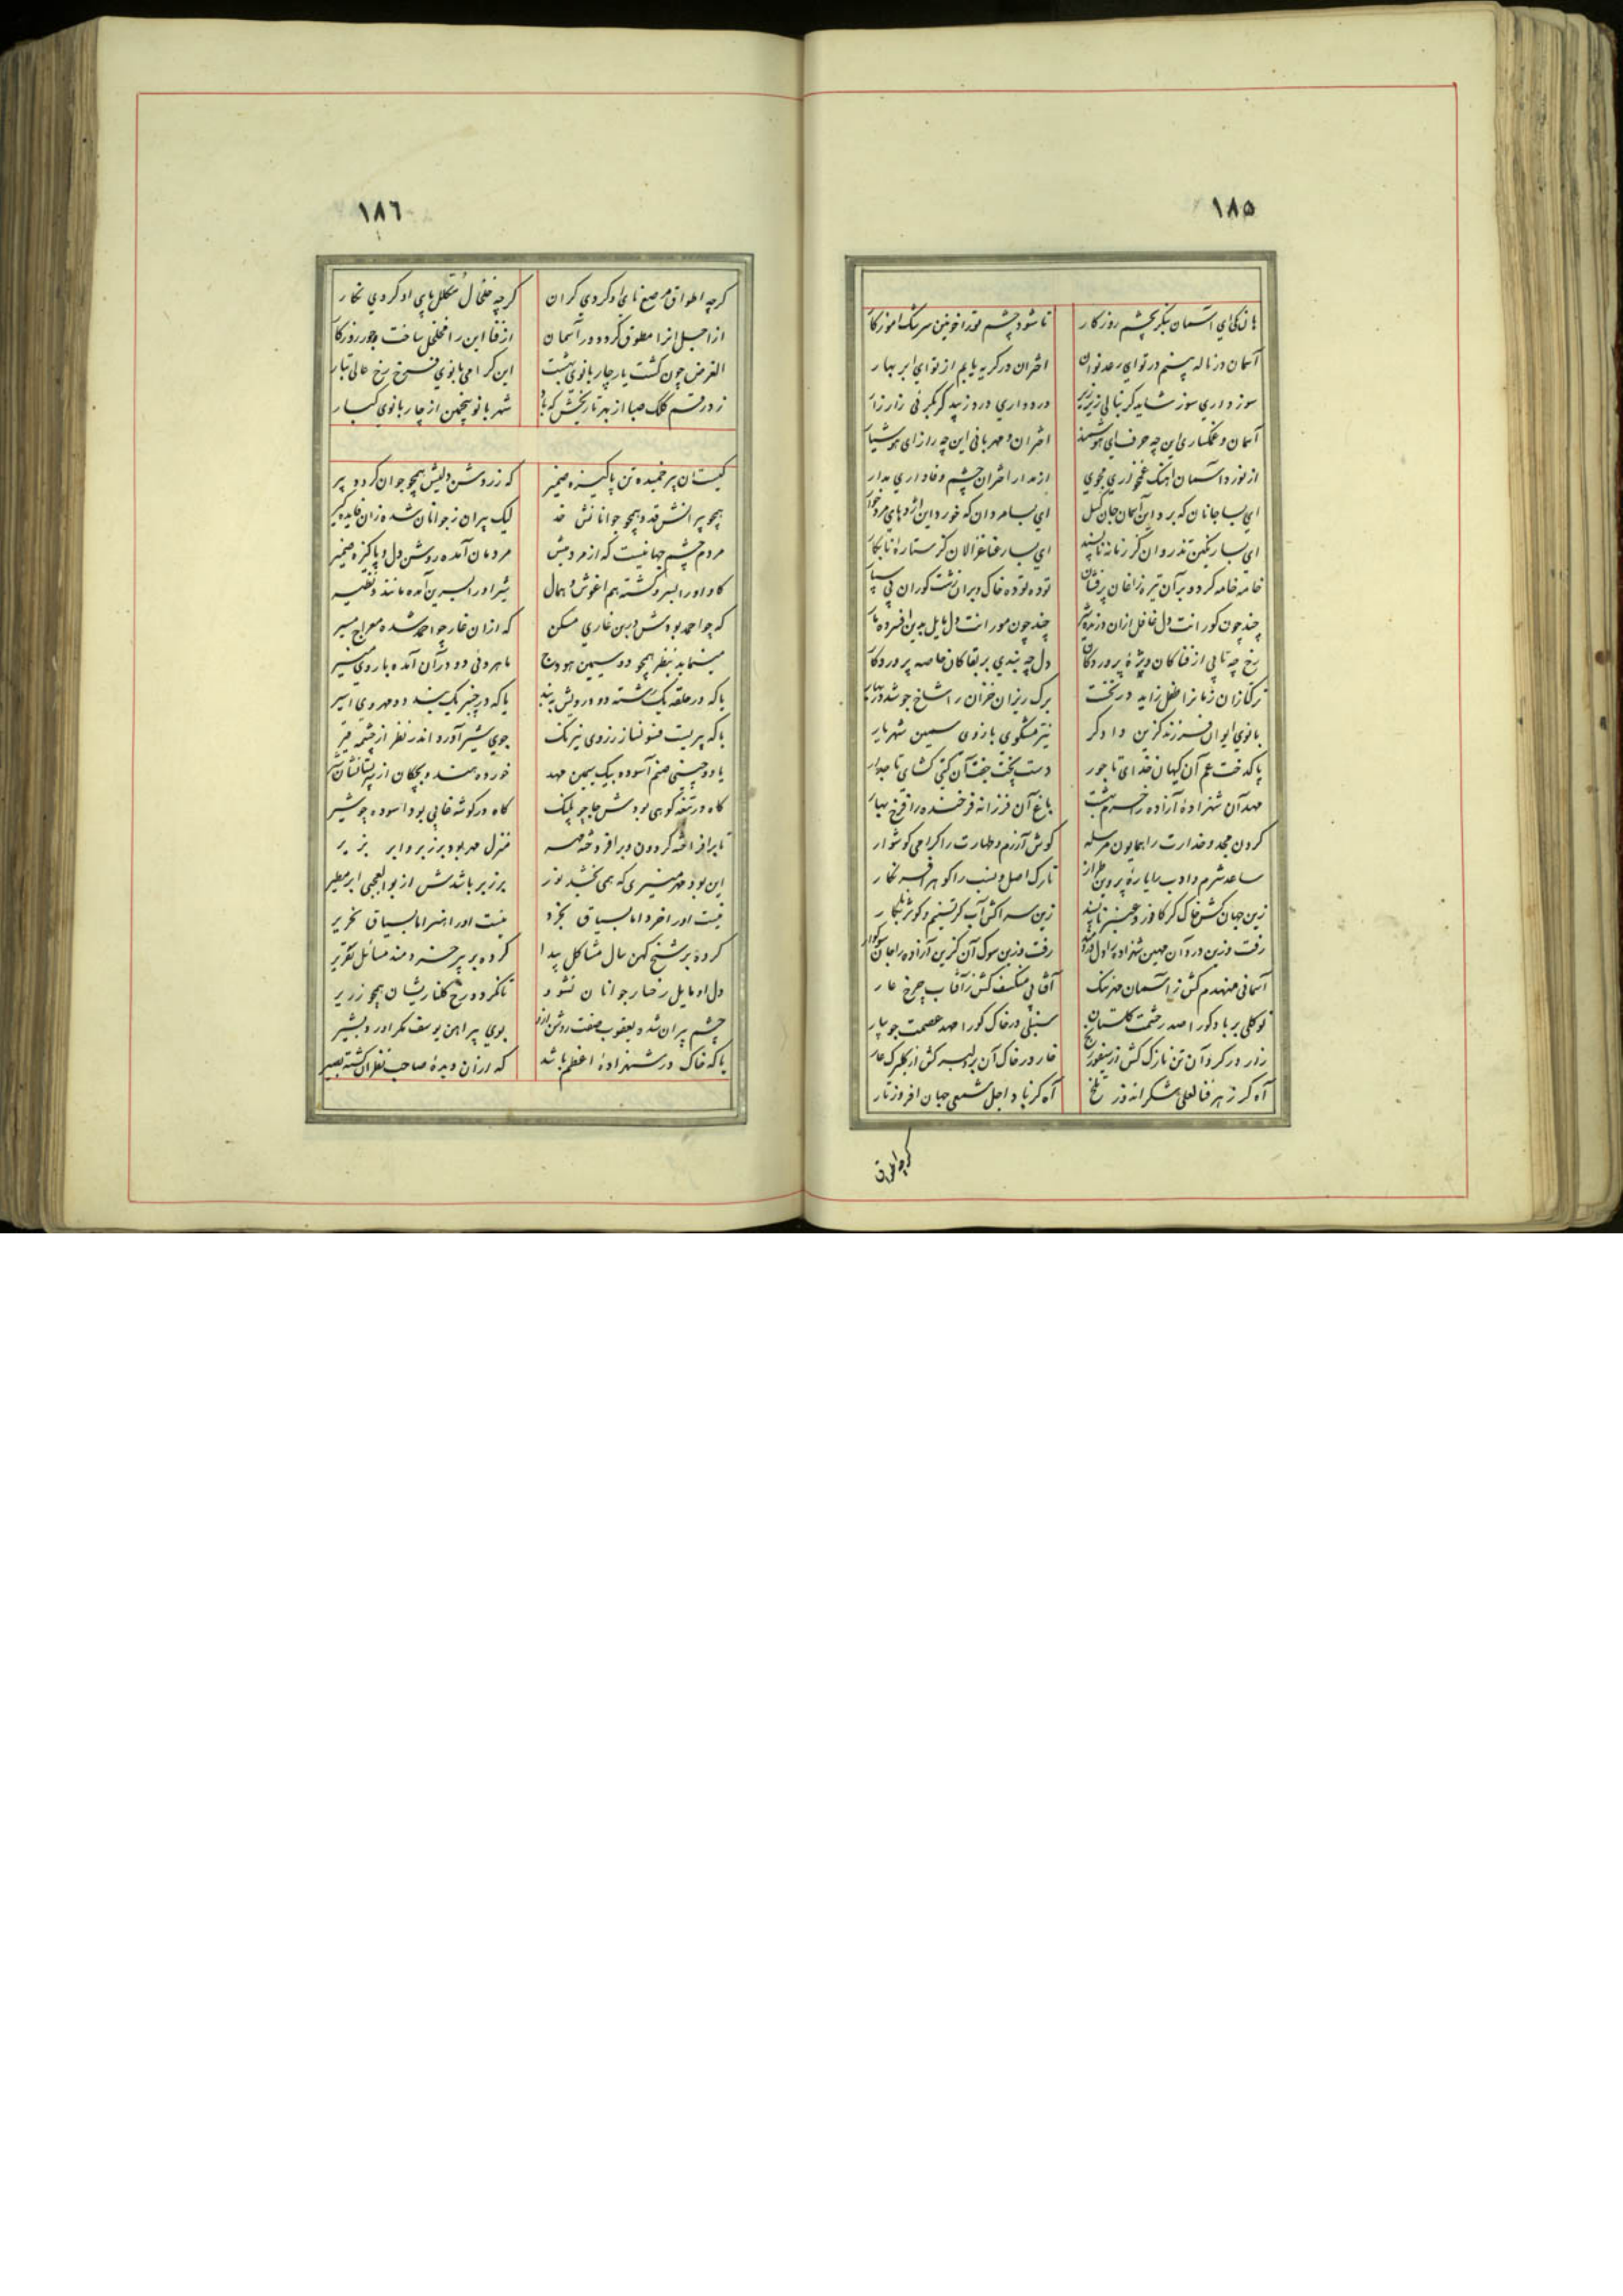 ١٨٥
هان کی ای آسمان بنگر بچشم روزکار تا شود چشم تورا خونین سرشک اموزکار
آسمان در ناله بینم در توای رعد نوان اختران در کریه یابم از تو ای ابر بهار
سوز داری سوز شاید کر بنالی زیر زیر درد داری درد زیبد کر بکریی زار زار
آسمان و غمکساری این چه حرف ای هوشمند اختران و مهربانی این چه راز ای هوشیار
از نورد آسمان اهنک غمخواری مجوی از مدار اختران چشم وفاداری مدار
ای بسا جانان که برد این آسمان جان کسل ای بسا مردان که خورد این اژدهای مردخوار
ای بسا رنکین تذروان کز زمانه ناپسند ای بسا رعنا غزالان کز ستاره نابکار
خامه خامه کرد ویران تیره زاغان پرفشان توده توده خاک ویران کشت کوران پی سپار
چند چون کورانت دل غافل ازان چند چون مورانت دل مایل بدین
رخ چه تابی از فناکان ویژهٔ پروردکان دل چه بندی بر بقا کان خاصه پروردکار
ترکتازان زمانرا طفل زاید درنخت برک ریزان خزان را شاخ جوشد در بهار
بانوی ایوان فرزند کزین دادکر نیز مشکوی بازوی سیمین شهریار
پاکدخت عم آن کیهان خدای تاجور دست پخت جفت آن کیتی کشای تاجدار
مهد آن شهزادهٔ آزاده را خرم بهشت باغ آن فرزانه فرخنده را فرخ بهار
کردن مجد و خدارت را همایون مرسله کوش آزرم و طهارت را کرامی کوشوار
ساعد شرم و ادب را یارهٔ پروین طراز تارک اصل و نسب را کوهر افسر نکار
زین جهان کش خاک کر کافور و عنبر ناپسند زین سرا کش آب کر تسنیم و کوثر
رفت وزین درد آن مهین شهزاده را دل دردمند رفت وزین سوک آن کزین آزاده را جان سوکوار
آسمانی منهدم کش ز آسمان مهر ننک آفتابی منکسف کش ز آفتاب چرخ عار
نوکلی بر باد کورا صد رحمت کلستان سنبلی در خاک کورا صد عصمت جویبار
زار در کرد آن تن نازک کش از رنج خار در خاک آن بر کش از کلبرک عار
آه کز زهر فنا لعلی شکر اندوز تلخ آه کز باد اجل شمعی جهان افروز تار
کرچه اطواق
١٨٦
کرچه اطواق مرصع نای او کردی کران کرچه خلخال مکلل پای او کردی نکار
از اجل انرا مطوق کرد دور آسمان از فنا این را مخلخل ساخت جور روزکار
الغرض چون کشت یار چار بانوی بهشت این کرامی بانوی فرخ رخ عالی تبار
زد رقم کلک صبا از بهر تاریخش که باد شهر بانو پنجمین از چار بانوی کبار
کیست آن پیر خمیده تن پاکیزه ضمیر که ز روشن دلیش همچو جوان کردد پیر
همچو پیرانش قد و همچو جوانانش خد لیک پیران ز جوانان شده زان فایده کیر
مردم چشم جهانیست که از مردمیش مردمان آمده روشن دل و پاکیزه ضمیر
کاو اورا بسر و کشته هم اغوش و همال شیر اورا ببر آمده مانند و نظیر
که چو احمد بودش درین غاری مسکن که ازان غار چو احمد شده معراج مسیر
مینماید بنظر همچو دو سیمین هودج ماهروئی دو درآن آمده با روی منیر
یا که در حلقه یک رشته دو درویش به بند یا که در چنبر یک بند دو مهروی اسیر
یا که پریست فسونساز ز روی نیرنک جوی شیر آورد اندر نظر از چشمه قیر
یا دو چینی صنم آسوده بیک سیمین مهد خورده هند و بچکان از پستانشان شیر
کاه در تیغه کوهی بودش جا چو پلنک کاه در کوشه غابی بود اسوده چو شیر
تا برافراشته کردون و برافروخته مهر منزل مهر بود بر زبر و ابر بزیر
این بود مهر منیری که همی بخشد نور بر زبر باشدش از بوالعجبی ابر مطیر
نیست اورا خرد اما بسیاق بخرد نیست اورا هنر اما بسیاق نحریر
کرده بر شیخ کهن سال مشاکل پیدا کرده بر پیر خردمند مسائل تقریر
دل او مایل رخسار جوانان نشود تا نکردد رخ کلنار یشان همچو زریر
چشم پیران شده یعقوب صفت روشن ازو بوی پیراهن یوسف مکر اورد بشیر
یا که خاک در شهزادهٔ اعظم باشد که ازان دیدهٔ صاحب نظران کشته بصیر